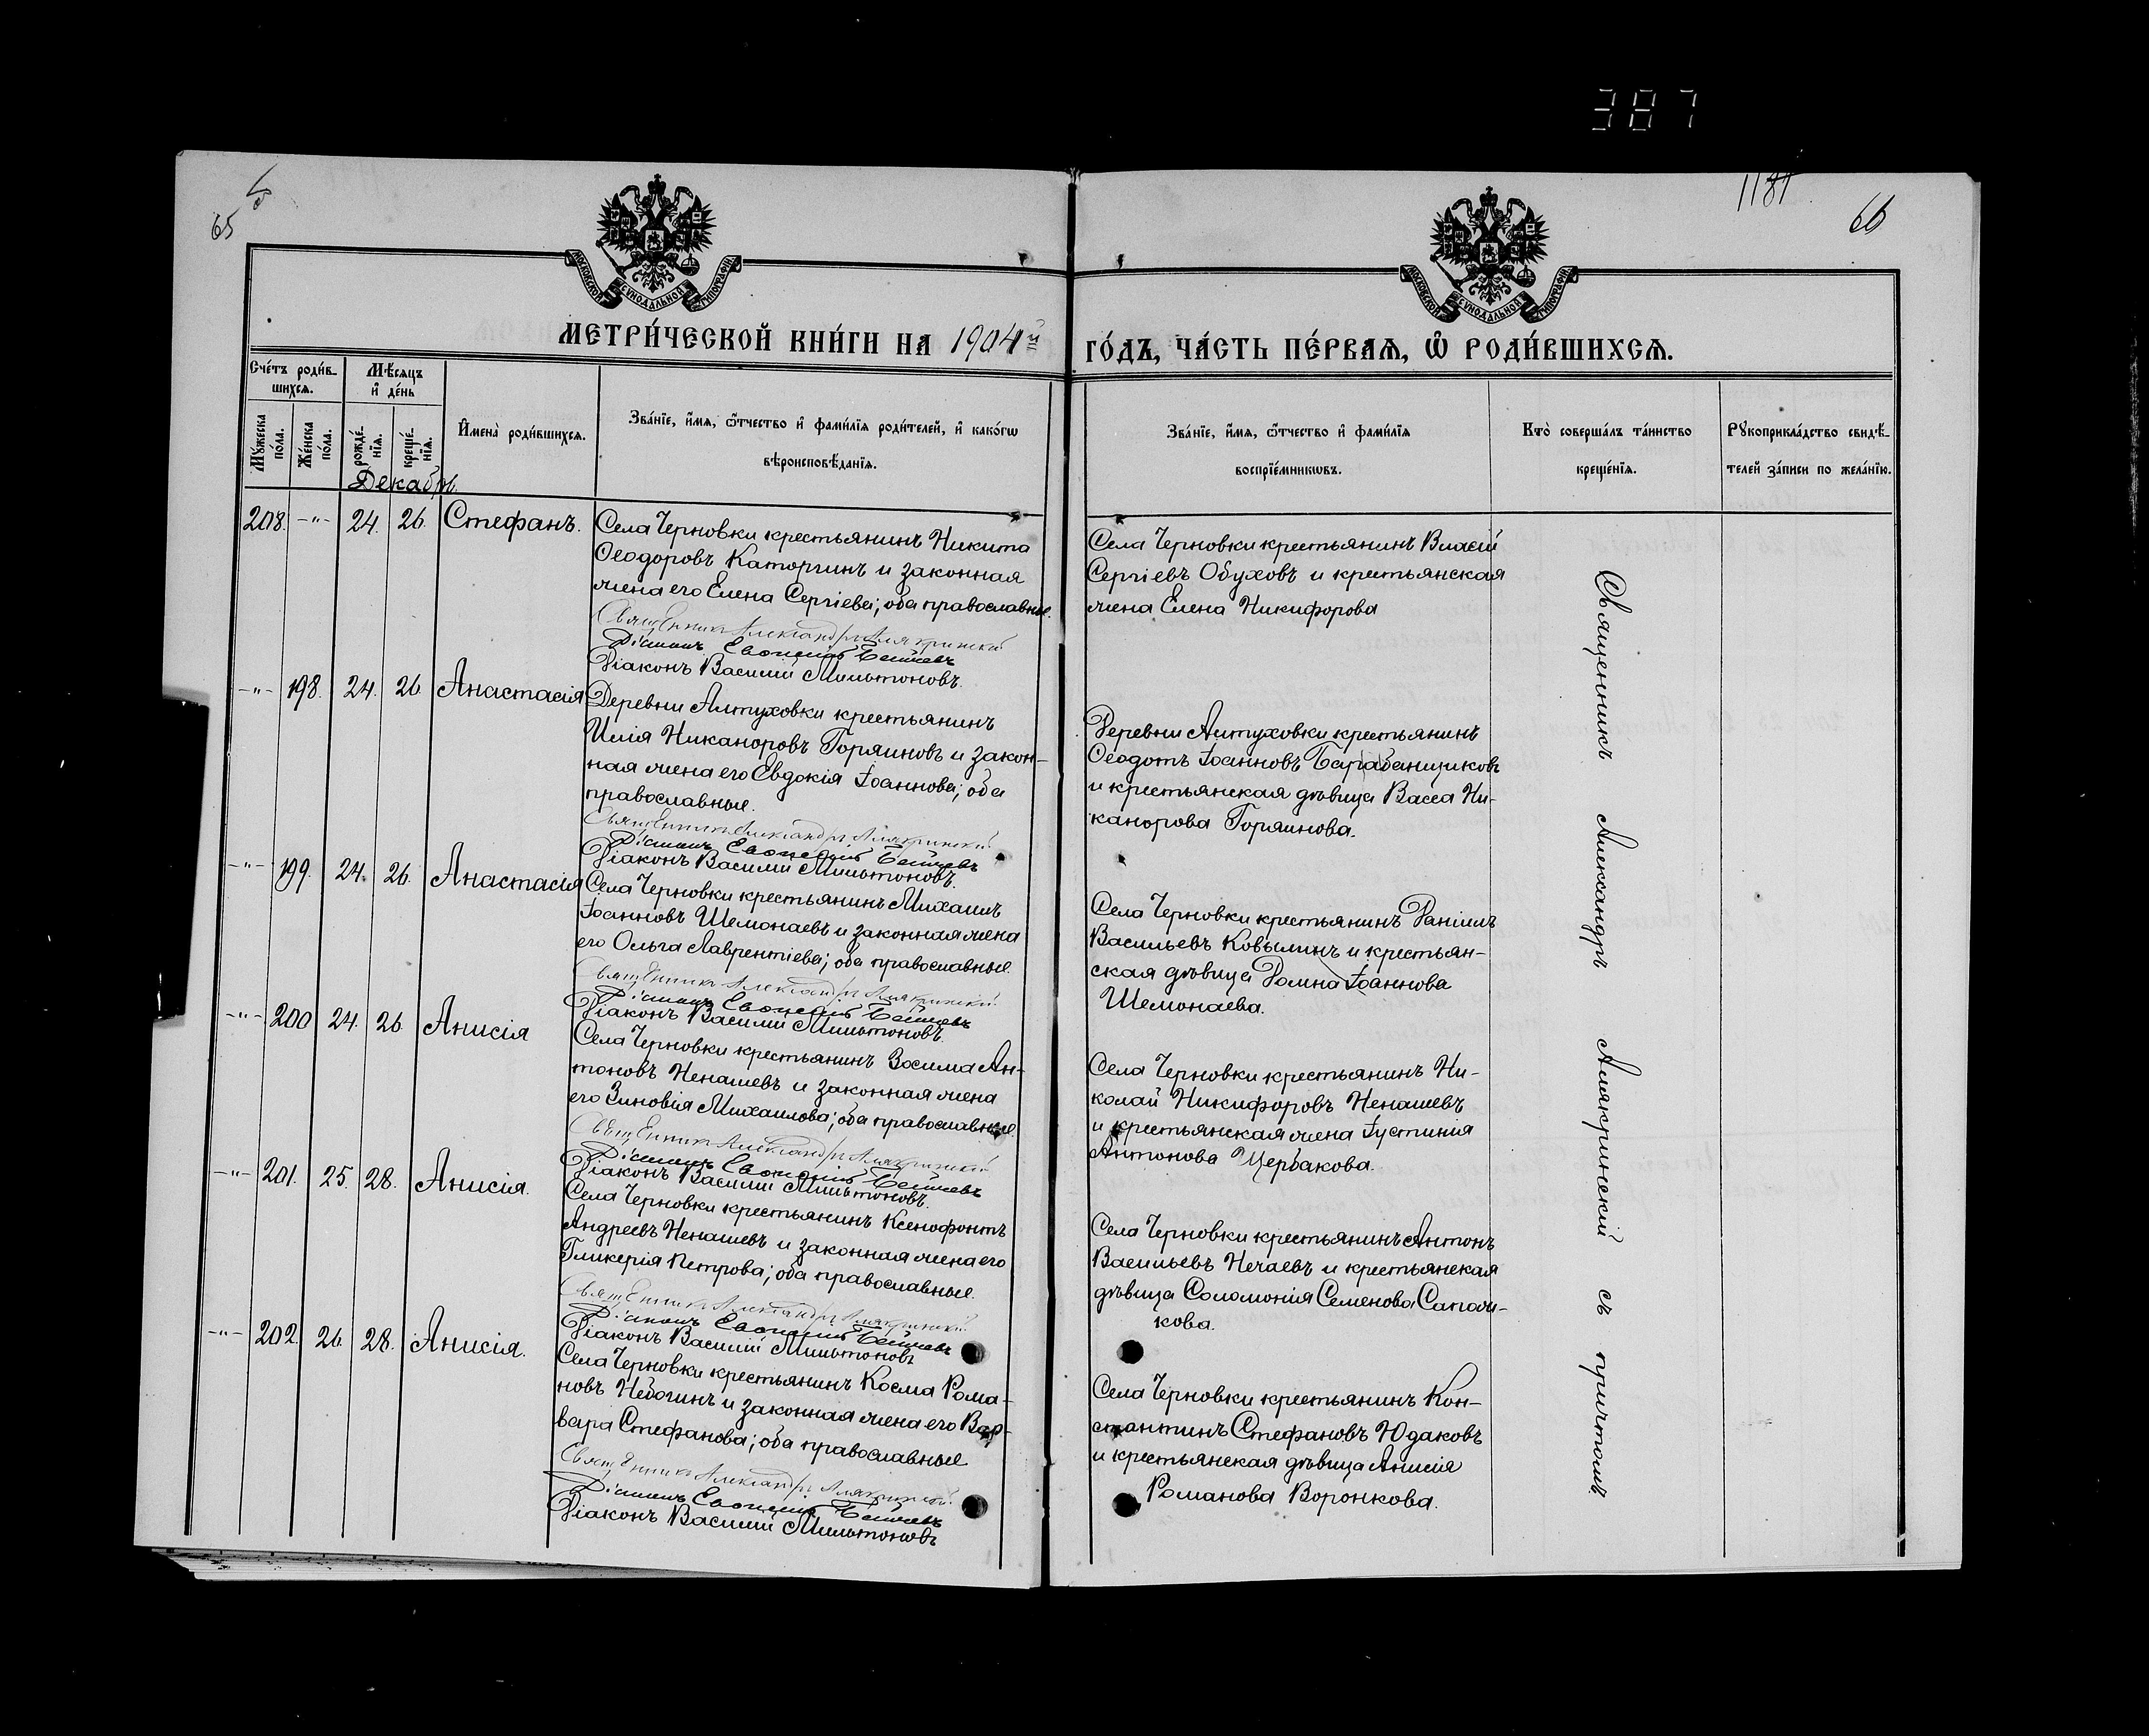 387
1187
65
66
МОСКОВСКОЙ СѴНОДАЛЬНОЙ ТИПОГРАФІИ
МОСКОВСКОЙ СѴНОДАЛЬНОЙ ТИПОГРАФІИ
МЕТРИ́ЧЕСКОЙ КНИ́ГИ НА 1904й
ГО́ДЪ, ЧА́СТЬ ПЕ́РВАѦ, Ѽ РОДИ́ВШИХСѦ.
Сче́тъ роди́в-
шихсѧ.
Мѣ́сѧцъ
и҆ де́нь
Мꙋ́жеска по́ла.
Же́нска по́ла.
рожде́-нїѧ.
креще́-нїѧ.
И҆мена̀ роди́вшихсѧ.
Зва́нїе, и҆́мѧ, ѻ҆́тчество и҆ фами́лїѧ роди́телей, и҆ како́гѡ
вѣроисповѣ́данїѧ.
Зва́нїе, и҆́мѧ, ѻ҆́тчество и҆ фами́лїѧ
воспрїе́мникѡвъ.
Кто̀ соверша́лъ та́инство
креще́нїѧ.
Рꙋкоприкла́дство свидѣ́-
телей за́писи по жела́нїю.
Декабрь.
208. -"- 24. 26. Стефанъ.
Села Черновки крестьянинъ Никита
Ѳеодоровъ Каторгинъ и законная
жена его Елена Сергіева; оба православные.
Священникъ Александръ Алякринскій
Діаконъ
Діаконъ Василій Мильтоновъ.
Села Черновки крестьянинъ Власій
Сергіевъ Обуховъ и крестьянская
жена Елена Никифорова
-"- 198. 24. 26. Анастасія
Деревни Алтуховки крестьянинъ
Илія Никаноровъ Горяиновъ и закон-
ная жена его Евдокія Іоаннова; оба
православные.
Священникъ Александръ Алякринскій
Діаконъ
Діаконъ Василій Мильтоновъ.
Деревни Алтуховки крестьянинъ
Ѳеодотъ Іоанновъ Барабанщиковъ
и крестьянская дѣвица Васса Ни-
канорова Горяинова.
-"- 199. 24. 26. Анастасія
Села Черновки крестьянинъ Михаилъ
Іоанновъ Шемонаевъ и законная жена
его Ольга Лаврентіева; оба православные.
Священникъ Александръ Алякринскій
Діаконъ
Діаконъ Василій Мильтоновъ.
Села Черновки крестьянинъ Даніилъ
Васильевъ Ковылинъ и крестьян-
ская дѣвица Домна Іоаннова
Шемонаева.
-"- 200 24. 26. Анисія
Села Черновки крестьянинъ Зосима Ан-
тоновъ Ненашевъ и законная жена
его Зиновія Михаилова; оба православные.
Священникъ Александръ Алякринскій
Діаконъ
Діаконъ Василій Мильтоновъ.
Села Черновки крестьянинъ Ни-
колай Никифоровъ Ненашевъ
и крестьянская жена Іустинія
Антонова Щербакова.
-"- 201. 25. 28. Анисія.
Села Черновки крестьянинъ Ксенофонтъ
Андреевъ Ненашевъ и законная жена его
Гликерія Петрова; оба православные.
Священникъ Александръ Алякринскій
Діаконъ
Діаконъ Василій Мильтоновъ
Села Черновки крестьянинъ Антонъ
Васильевъ Нечаевъ и крестьянская
дѣвица Соломонія Семенова Сапожн-
кова.
-"- 202. 26. 28. Анисія.
Села Черновки крестьянинъ Косма Рома-
новъ Небогинъ и законная жена его Вар-
вара Стефанова; оба православные
Священникъ Александръ Алякринскій
Діаконъ
Діаконъ Василій Мильтоновъ
Села Черновки крестьянинъ Кон-
стантинъ Стефановъ Юдаковъ
и крестьянская дѣвица Анисія
Романова Воронкова.
Священникъ Александръ Алякринскій съ причтомъ